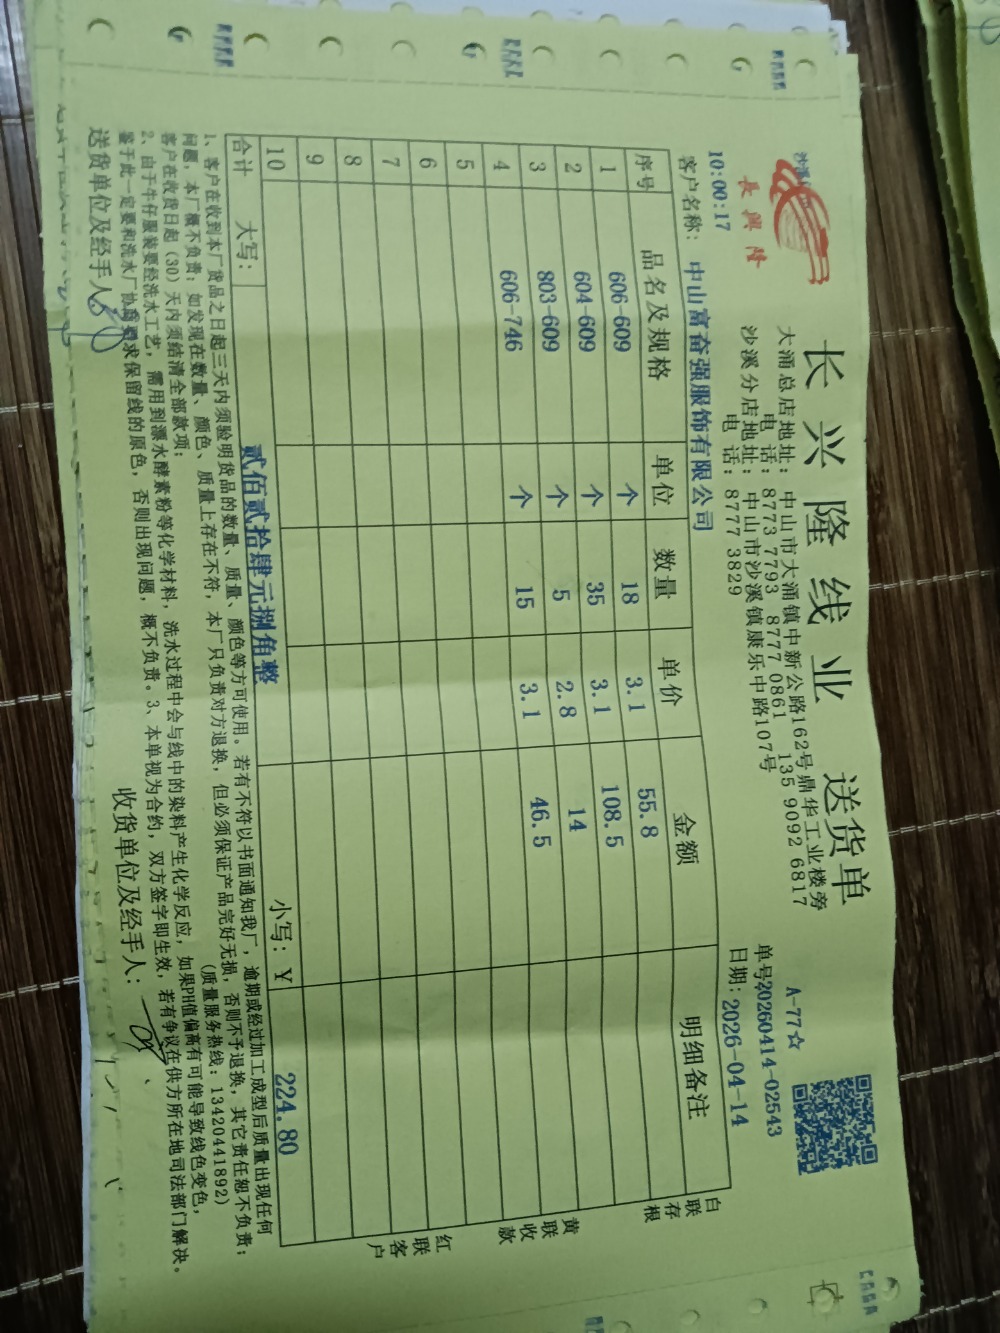 長興隆
长兴隆线业 送货单
大涌总店地址：中山市大涌镇中新公路162号鼎华工业楼旁
电话：8773 7793 8777 0861 135 9092 6817
沙溪分店地址：中山市沙溪镇康乐中路107号
电话：8777 3829
A-77☆
单号20260414-02543
日期：2026-04-14
10:00:17
客户名称：中山富奋强服饰有限公司
序号 品名及规格 单位 数量 单价 金额 明细备注
1 606-609 个 18 3.1 55.8
2 604-609 个 35 3.1 108.5
3 803-609 个 5 2.8 14
4 606-746 个 15 3.1 46.5
5
6
7
8
9
10
合计 大写：贰佰贰拾肆元捌角整 小写：¥ 224.80
白联存根
黄联收款
红联客户
1、客户在收到本厂货品之日起三天内须验明货品的数量、质量、颜色等方可使用。若有不符以书面通知我厂，逾期或经过加工成型后质量出现任何
问题，本厂概不负责；如发现在数量、颜色、质量上存在不符，本厂只负责对方退换，但必须保证产品完好无损，否则不予退换，其它责任恕不负责；
客户在收货日起（30）天内须结清全部款项； (质量服务热线：13420441892)
2、由于牛仔服装要经洗水工艺，需用到漂水酵素粉等化学材料，洗水过程中会与线中的染料产生化学反应，如果PH值偏高有可能导致线色变色，
鉴于此一定要和洗水厂协商要求保留线的原色，否则出现问题，概不负责。3、本单视为合约，双方签字即生效，若有争议在供方所在地司法部门解决。
送货单位及经手人 收货单位及经手人：